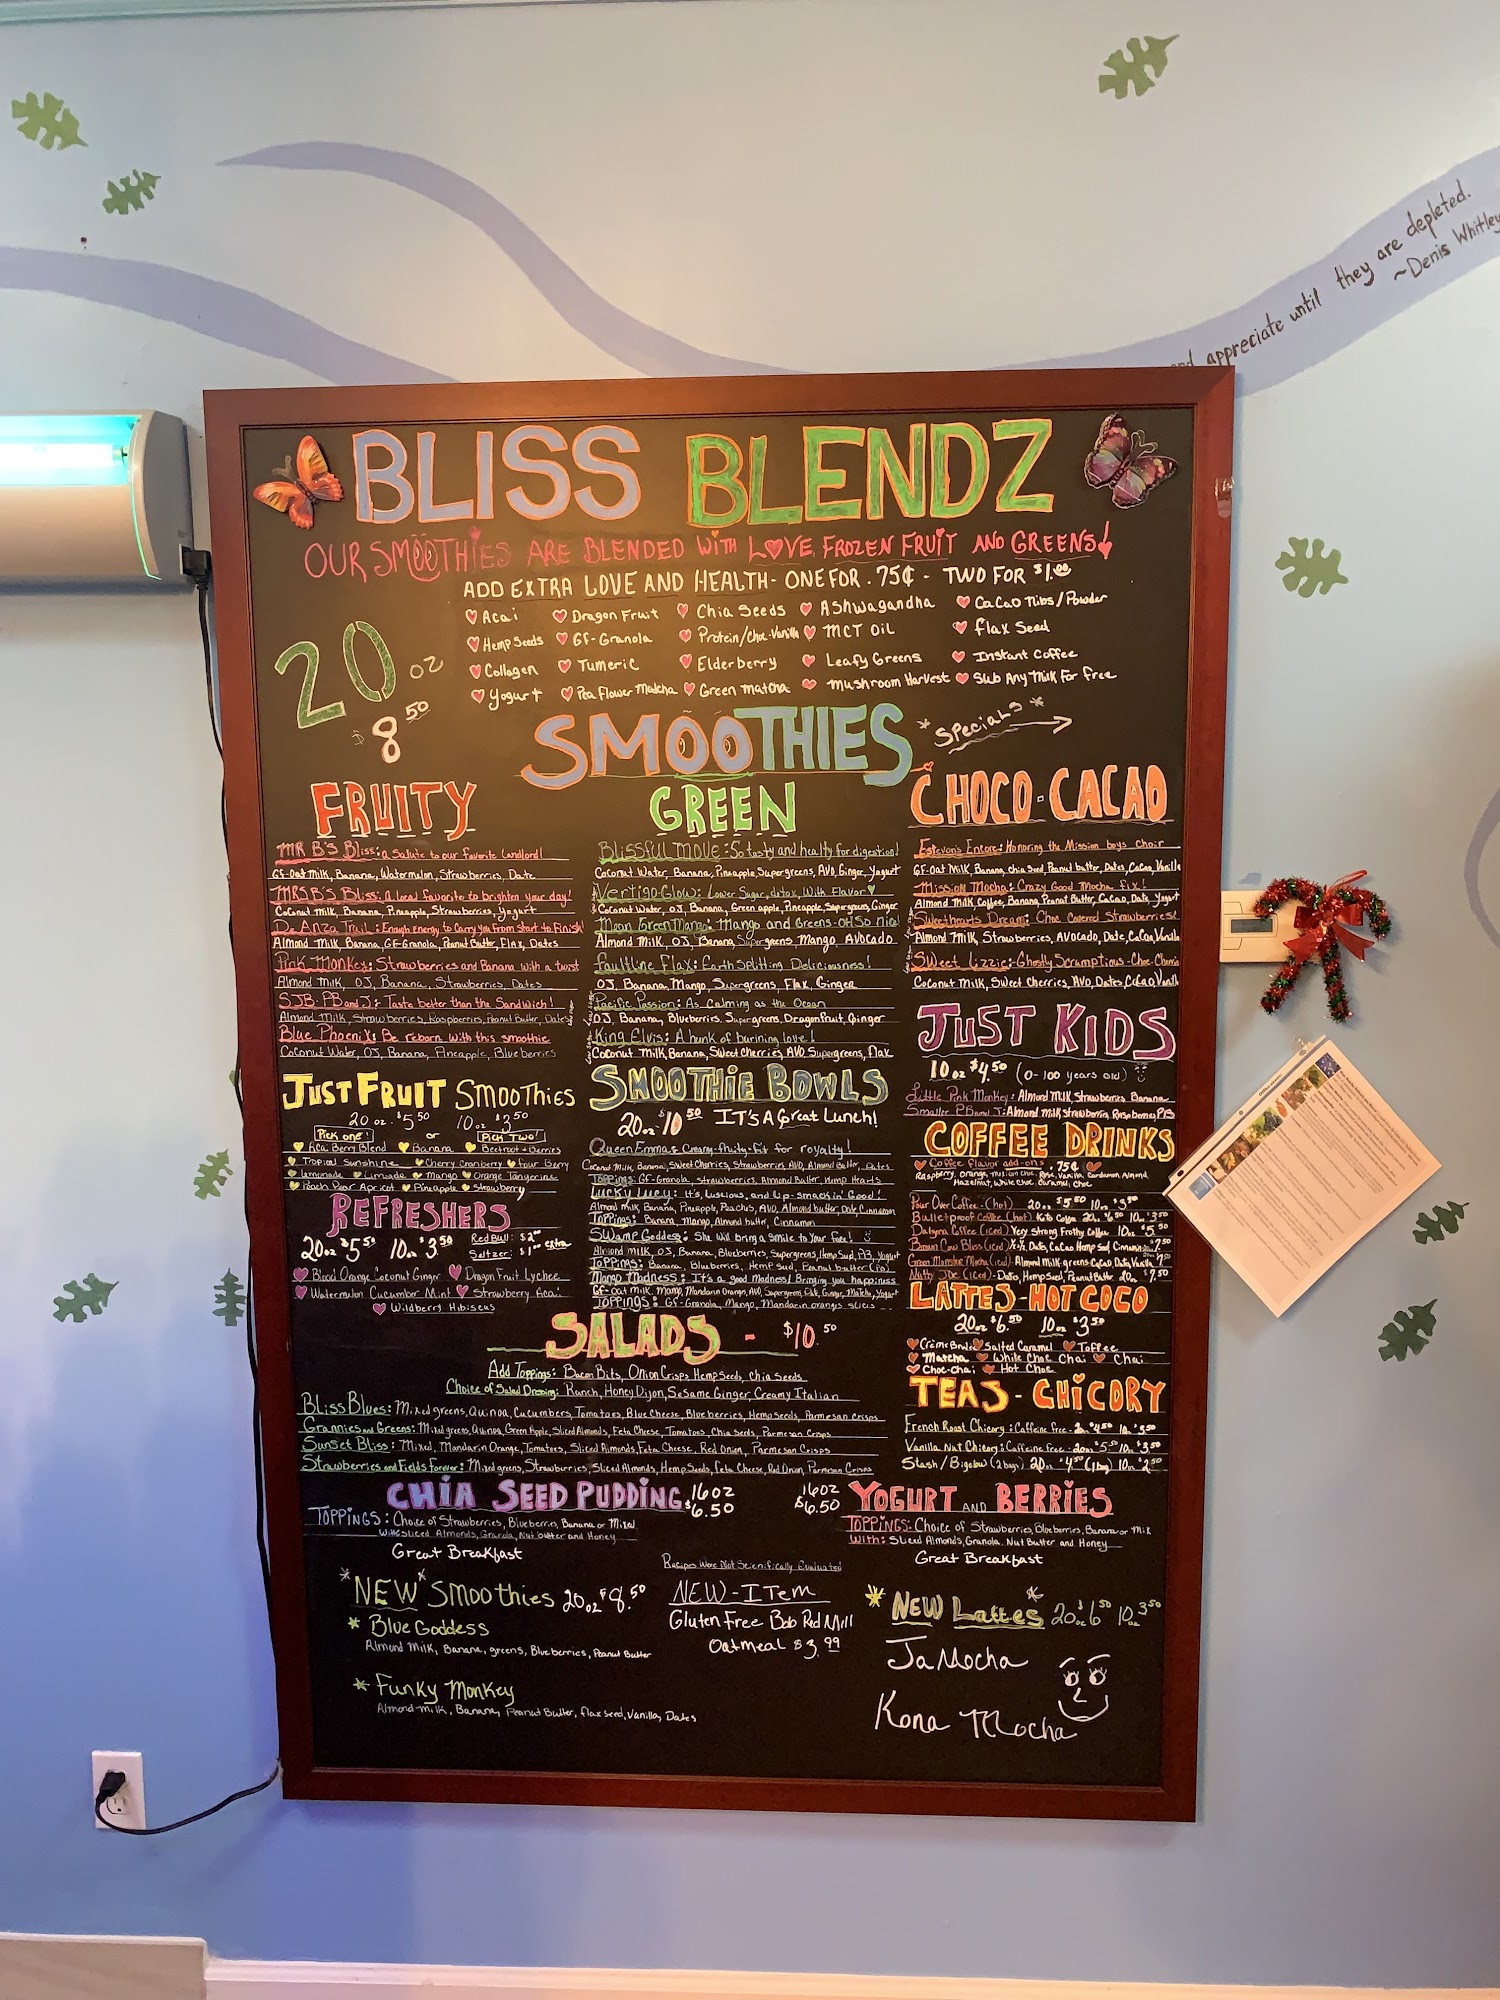 they are depleted.
~Denis Whitley
appreciate until
BLISS BLENDZ
OUR SMOOTHIES ARE BLENDED WITH LOVE, FROZEN FRUIT AND GREENS!
ADD EXTRA LOVE AND HEALTH - ONE FOR .75¢ - TWO FOR $1.00
Acai Dragon Fruit Chia Seeds Ashwagandha CaCao Nibs/Powder
Hemp Seeds GF-Granola Protein/Choc-Vanilla MCT Oil Flax Seed
Collagen Tumeric Elderberry Leafy Greens Instant Coffee
Yogurt Pea Flower Matcha Green Matcha Mushroom Harvest Sub Any Milk For Free
20 oz
$8.50
SMOOTHIES
*Specials*
FRUITY
MR B'S Bliss: a Salute to our favorite Landlord!
GF-Oat Milk, Banana, Watermelon, Strawberries, Date
MRS B'S Bliss: A local favorite to brighten your day!
Coconut Milk, Banana, Pineapple, Strawberries, Yogurt
De Anza Trail: Enough Energy to Carry You From Start to Finish!
Almond Milk, Banana, GF-Granola, Peanut Butter, Flax, Dates
Pink Monkey: Strawberries and Banana with a twist
Almond Milk, OJ, Banana, Strawberries, Dates
SJB-PB and J: Taste better than the Sandwich!
Almond Milk, Strawberries, Raspberries, Peanut Butter, Dates
Blue Phoenix: Be reborn with this smoothie
Coconut Water, OJ, Banana, Pineapple, Blueberries
GREEN
Blissful Move: So tasty and healty for digestion!
Coconut Water, Banana, Pineapple, Supergreens, AVO, Ginger, Yogurt
Vertigo-Glow: Lower Sugar, detox, With Flavor
Coconut Water, OJ, Banana, Green apple, Pineapple, Supergreens, Ginger
Mean Green Mango: Mango and Greens-OH So nice!
Almond Milk, OJ, Banana, Supergreens, Mango, AVOCADO
Faultline Flax: Earth Splitting Deliciousness!
OJ, Banana, Mango, Supergreens, Flax, Ginger
Pacific Passion: As Calming as the Ocean
OJ, Banana, Blueberries, Supergreens, Dragonfruit, Ginger
King Elvis: A hunk of burining love!
Coconut Milk, Banana, Sweet Cherries, AVO, Supergreens, Flax
CHOCO-CACAO
Estevon's Encore: Honoring the Mission boys choir
GF-Oat Milk, Banana, Chia Seed, Peanut butter, Dates, CaCao, Vanilla
Mission Mocha: Crazy Good Mocha Fix!
Almond Milk, Coffee, Banana, Peanut Butter, CaCao, Date, Yogurt
Sweethearts Dream: Choc Covered Strawberries!
Almond Milk, Strawberries, AVOCADO, Date, CaCao, Vanilla
Sweet Lizzie: Ghostly Scrumptious-Choc-Cherries
Coconut Milk, Sweet Cherries, AVO, Dates, CaCao, Vanilla
JUST KIDS
10 oz $4.50 (0-100 years old)
Little Pink Monkey: Almond Milk, Strawberries, Banana
Smaller PB and J: Almond Milk, Strawberries, Raspberries, PB
JUST FRUIT SMOOTHIES
20 oz. $5.50 10 oz $3.50
Pick one! or Pick Two!
Acai Berry Blend Banana Beetroot+Berries
Tropical Sunshine Cherry Cranberry Four Berry
Lemonade Limeade Mango Orange Tangerine
Peach Pear Apricot Pineapple Strawberry
SMOOTHIE BOWLS
20oz $10.50 IT'S A Great Lunch!
Queen Emma: Creamy-fruity-fit for royalty!
Coconut Milk, Banana, Sweet Cherries, Strawberries, AVO, Almond Butter, Dates
Toppings: GF-Granola, Strawberries, Almond Butter, Hemp Hearts
Lucky Lucy: It's Luscious and lip-smackin' Good!
Almond Milk, Banana, Pineapple, Peaches, AVO, Almond butter, Date, Cinnamon
Toppings: Banana, Mango, Almond butter, Cinnamon
Swamp Goddess: She will bring a smile to Your face!
Almond Milk, OJ, Banana, Blueberries, Supergreens, Hemp Seed, PB, Yogurt
Toppings: Banana, Blueberries, Hemp Seed, Peanut butter (PB)
Mango Madness: It's a good Madness! Bringing you happiness
GF-Oat Milk, Mango, Mandarin Orange, AVO, Supergreens, Date, Ginger, Matcha, Yogurt
Toppings: GF-Granola, Mango, Mandarin oranges slices
COFFEE DRINKS
Coffee Flavor add-ons .75¢
Raspberry, Orange, Mexican Choc, Rose, Vanilla, Cardamon, Almond,
Hazelnut, White Choc, Caramel, Choc
Pour Over Coffee-(hot) 20oz $5.50 10oz $3.50
Bulletproof Coffee (hot) Keto Coffee 20oz $6.50 10oz $3.50
Dalgona Coffee (iced) Very Strong Frothy Coffee 10oz $5.50
Brown Cow Bliss (iced) Dates, CaCao Hemp Seed Cinnamon $7.50
Green Monster Mocha (iced) Almond Milk-greens-CaCao, Dates, Vanilla
Nutty Joe (iced)-Dates, Hemp Seed, Peanut Butter 20oz $7.50
REFRESHERS
20oz $5.50 10oz $3.50 Red Bull: $2.00
Seltzer: $1.00 extra
Blood Orange Coconut Ginger Dragon Fruit Lychee
Watermelon Cucumber Mint Strawberry Acai
Wildberry Hibiscus
LATTES-HOT COCO
20oz $6.50 10oz $3.50
Crème Brulee Salted Caramel Toffee
Matcha White Choc Chai Chai
Choc-Chai Hot Choc
SALADS - $10.50
Add Toppings: Bacon Bits, Onion Crisps, Hemp Seeds, Chia Seeds
Choice of Salad Dressing: Ranch, Honey Dijon, Sesame Ginger, Creamy Italian
Bliss Blues: Mixed greens, Quinoa, Cucumbers, Tomatoes, Blue Cheese, Blueberries, Hemp Seeds, Parmesan Crisps
Grannies and Greens: Mixed greens, Quinoa, Green Apple, Sliced Almonds, Feta Cheese, Tomatoes, Chia Seeds, Parmesan Crisps
Sunset Bliss: Mixed, Mandarin Orange, Tomatoes, Sliced Almonds, Feta Cheese, Red Onion, Parmesan Crisps
Strawberries and Fields Forever: Mixed greens, Strawberries, Sliced Almonds, Hemp Seeds, Feta Cheese, Red Onion, Parmesan Crisps
TEAS-CHICORY
French Roast Chicory: Caffeine free-20oz $4.50 10oz $3.50
Vanilla Nut Chicory: Caffeine free-20oz $5.50 10oz $3.50
Stash/Bigelow (2 bags) 20oz $4.50 (1 bag) 10oz $2.50
CHIA SEED PUDDING 16oz $6.50
TOPPINGS: Choice of Strawberries, Blueberries, Banana or Mixed
With: Sliced Almonds, Granola, Nut butter and Honey
Great Breakfast
16oz $6.50 YOGURT AND BERRIES
TOPPINGS: Choice of Strawberries, Blueberries, Banana or Mix
With: Sliced Almonds, Granola, Nut Butter and Honey
Great Breakfast
Recipes Were Not Scientifically Evaluated
*NEW* Smoothies 20oz $8.50
* Blue Goddess
Almond Milk, Banana, greens, Blueberries, Peanut Butter
* Funky Monkey
Almond-milk, Banana, Peanut Butter, flax seed, Vanilla, Dates
NEW-ITEM
Gluten Free Bob Red Mill
Oatmeal $3.99
* NEW Lattes * 20oz $6.50 10oz $3.50
Ja Mocha
Kona Mocha